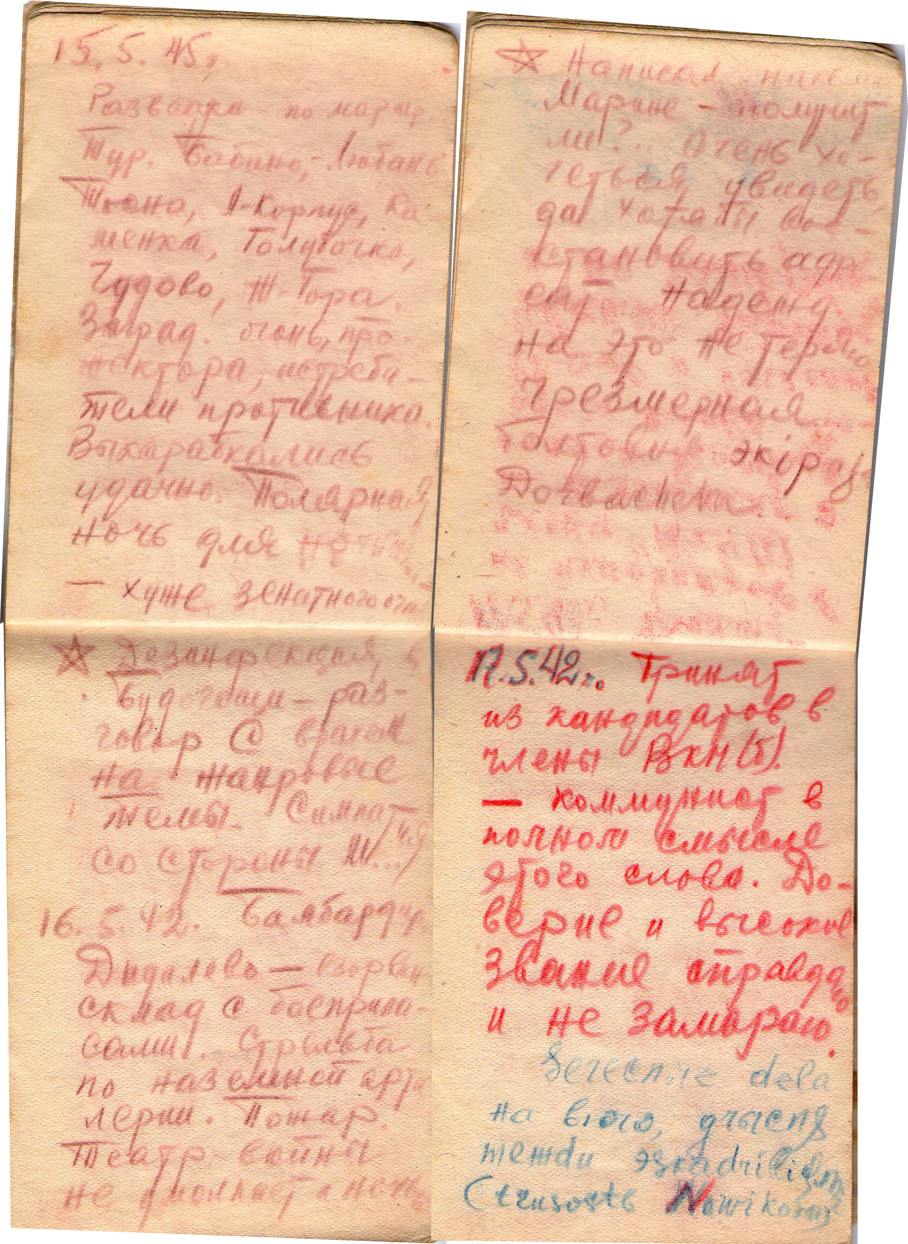 15.5.45г.
Разведка по марш
тур. Бабино, Любань
Тосно, Л-Корпус, Ка
менка, Голубочка,
Чудово, Ж-Гора.
Заград. огонь, про-
жектора, истреби-
тели противника.
Выкарабкались
удачно. Полярная
ночь для
— хуже зенатного огн
☆ Дезинфекция в
Будогощи – раз-
говор с врачом
на жанровые
темы. Симпатия
со стороны М...
16.5.42. Бамбардир
Дидилово — взорван
склад с боеприпа-
сами. Стрельба
по наземной арти
лерии. Пожар.
Театр войны
не умолкает и ночь
☆ Написал письм
Марине – получит
ли?.. Очень хо-
теться увидеть,
да хотя бы вос-
становить адре
сат. Надежд
на это не теряю
Чрезмерная
болтовня экіпажа
17.5.42г. Принят
из кандидатов в
члены ВКП(б).
— коммунист в
полном смысле
этого слова. До-
верие и высокое
звание оправдаю
и не замараю.
dela
на
между
Nowikowa